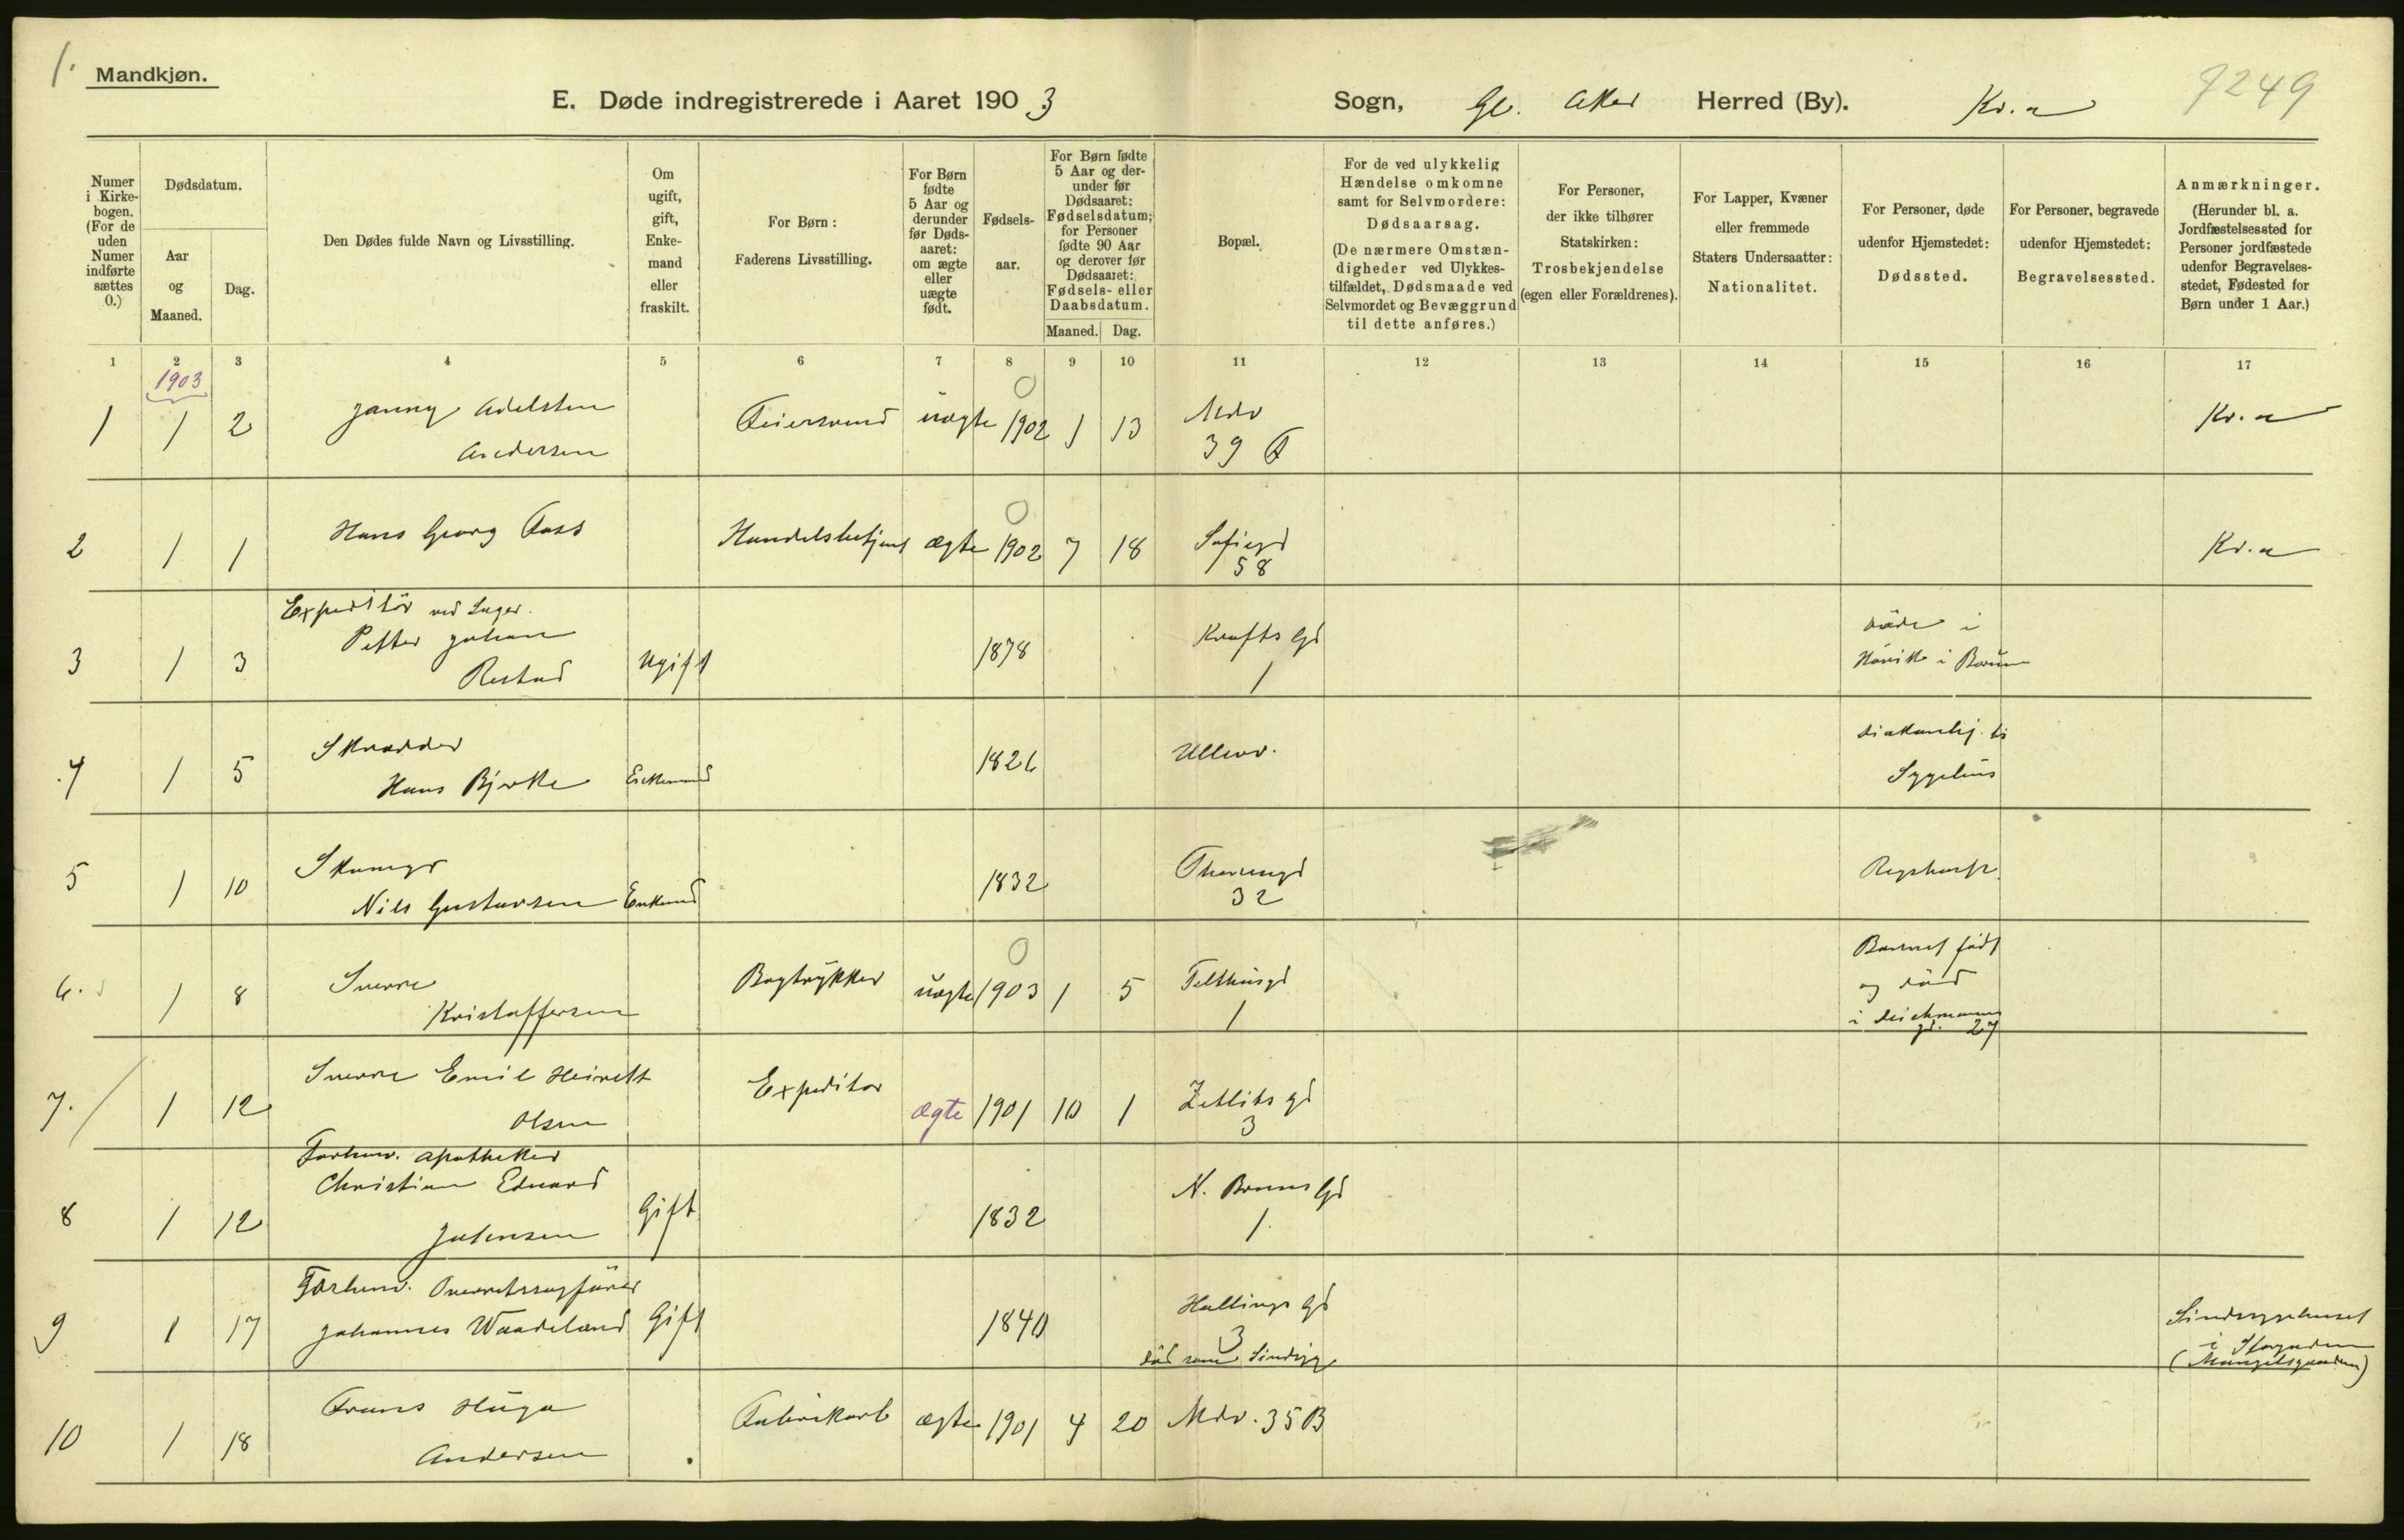 1.
Mandkjøn.
E. Døde indregistrerede i Aaret 1903
Sogn, Gl. Aker Herred (By). Kr.a
7249
Numer i Kirke-bogen. (For de uden Numer indførte sættes 0.)
Dødsdatum.
Aar og Maaned.
Dag.
Den Dødes fulde Navn og Livsstilling.
Om ugift, gift, Enke-mand eller fraskilt.
For Børn: Faderens Livsstilling.
For Børn fødte 5 Aar og derunder før Døds-aaret: om ægte eller uægte født.
Fødsels-aar.
For Børn fødte 5 Aar og der-under før Dødsaaret: Fødselsdatum; for Personer fødte 90 Aar og derover før Dødsaaret: Fødsels- eller Daabsdatum.
Maaned. Dag.
Bopæl.
For de ved ulykkelig Hændelse omkomne samt for Selvmordere: Dødsaarsag. (De nærmere Omstæn-digheder ved Ulykkes-tilfældet, Dødsmaade ved Selvmordet og Bevæggrund til dette anføres.)
For Personer, der ikke tilhører Statskirken: Trosbekjendelse (egen eller Forældrenes).
For Lapper, Kvæner eller fremmede Staters Undersaatter: Nationalitet.
For Personer, døde udenfor Hjemstedet: Dødssted.
For Personer, begravede udenfor Hjemstedet: Begravelsessted.
Anmærkninger. (Herunder bl. a. Jordfæstelsessted for Personer jordfæstede udenfor Begravelses-stedet, Fødested for Børn under 1 Aar.)
1 2 3 4 5 6 7 8 9 10 11 12 13 14 15 16 17
1903
1 1 2 Janny Adelsten Andersen Feiersvend uægte 1902 1 13 Mdv 39 Kr.a
2 1 1 Hans Georg Foss Handelsbetjent ægte 1902 7 18 Sofiegd 58 Kr.a
3 1 3 Expeditör ved Lager. Petter Johan Restad Ugift 1878 Krafts Gd 1 döde i Hövik i Bærum
4 1 5 Skrædder Hans Bjerke Enkemand 1826 Ullevv. Sygehus
5 1 10 Nils Gustavsen Enkemd 1832 Theresgd 32 Rigshosp.
6. 1 8 Sverre Kristoffersen Bogtrykker uægte 1903 1 5 Telthusgd 1 Barnet födt og död i Deichmans gd. 27
7. 1 12 Sverre Emil Olsen Expeditor ægte 1901 10 1 Zetlits gd 3
8 1 12 Forhenv. Apotheker Christian Edvard Johnsen Gift 1832 N. Bruns Gd 1.
9 1 17 Forhenv. Overretssagförer Johannes Waadeland Gift 1840 Hallings Gd 3 död som Sindsyg Sindssygehuset i Storgaden (Mangelsgaarden)
10 1 18 Frans Hugo Andersen Fabrikarb ægte 1901 4 20 Mdv. 35 B